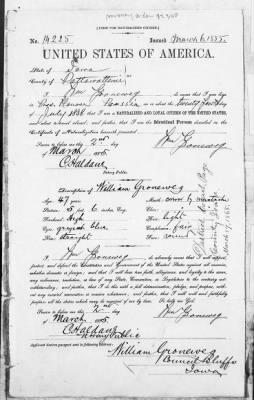 [FORM FOR NATURALIZED CITIZEN.]
No. 14225 Issued March 6, 1885.
UNITED STATES OF AMERICA.
State of Iowa
County of Pottawattamie
I, Wm Groneweg, do swear that I was born
July 1838
that I am a NATURALIZED AND LOYAL CITIZEN OF THE UNITED STATES
and that I am the Identical Person described in the
Certificate of Naturalization herewith presented.
Sworn to before me this 2nd day
of March 1885
Wm Groneweg
C Haldane
Notary Public.
Description of William Groneweg
Age: 47 years
Stature: 5 feet 6 inches, Eng.
Forehead: high
Eyes: grayish blue
Nose: straight
Mouth: covered by mustache
Chin:
Hair: light
Complexion: fair
Face: round
District Court
County, Iowa
I, Wm Groneweg, do solemnly swear that I will support,
protect, and defend the Constitution and Government of the United States against all enemies,
whether domestic or foreign; and that I will bear true faith, allegiance, and loyalty to the same,
any ordinance, resolution, or law of any State, Convention, or Legislature to the contrary not-
withstanding; and further, that I do this with a full determination, pledge, and purpose, with-
out any mental reservation or evasion whatsoever; and further, that I will well and faithfully
perform all the duties which may be required of me by law. So help me God.
Sworn to before me this 2nd day
of March 1885
Wm Groneweg
C Haldane
Notary Public
Applicant desires passport sent to following address:
William Groneweg
Council Bluffs
Iowa